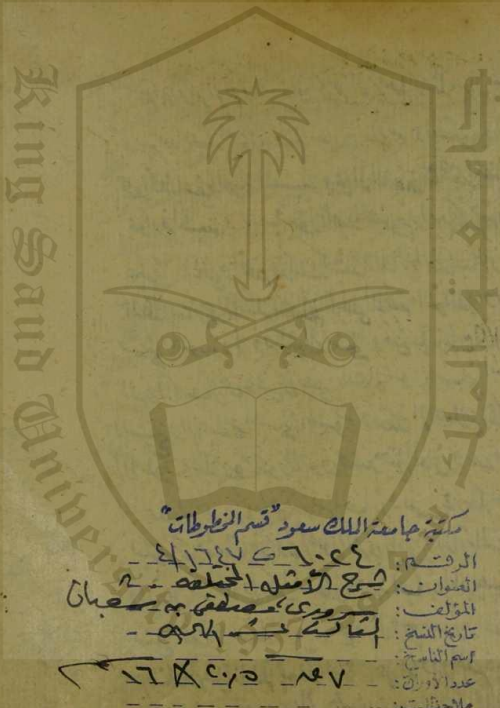 King Saud University
جامعة الملك سعود
مكتبة جامعة الملك سعود "قسم المخطوطات"
الرقم: ٦٠٢٤ ٤/١٦٤٧
العنوان: شرح الأمثلة المختلفة
المؤلف: سروري، مصطفى بن شعبان
تاريخ النسخ: القرن الثالث عشر الهجري
اسم الناسخ:
عدد الأوراق: ٧ ١٦ × ٢٠٫٥
ملاحظات: